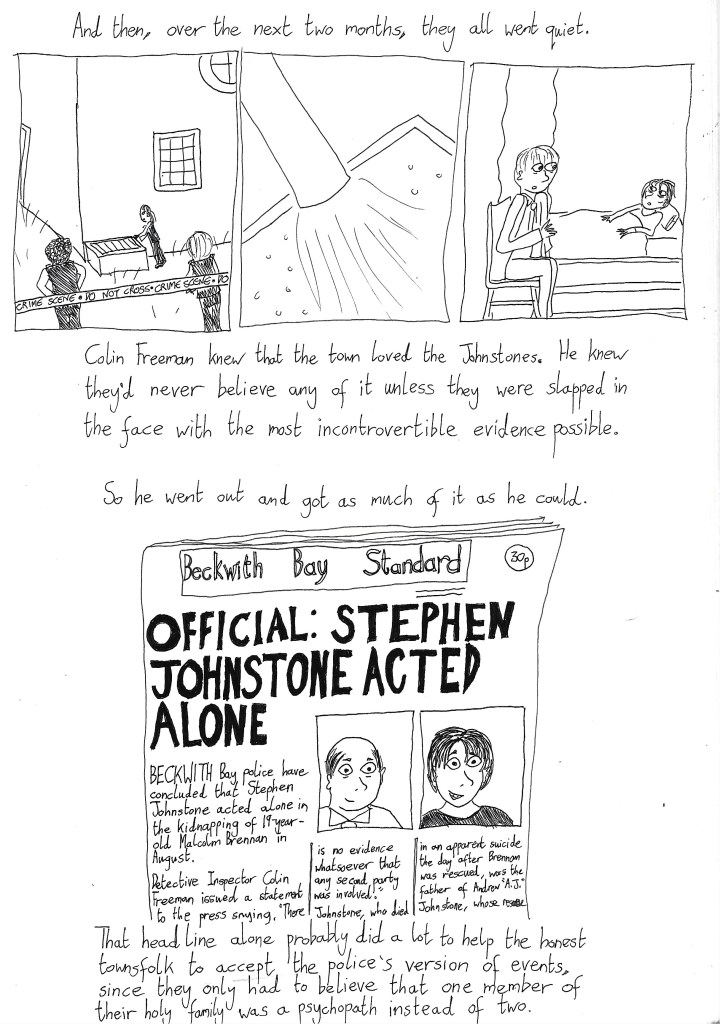 And then, over the next two months, they all went quiet.
CRIME SCENE • DO NOT CROSS • CRIME SCENE • DO
Colin Freeman knew that the town loved the Johnstones. He knew
they'd never believe any of it unless they were slapped in
the face with the most incontrovertible evidence possible.
So he went out and got as much of it as he could.
Beckwith Bay Standard
30p
OFFICIAL: STEPHEN
JOHNSTONE ACTED
ALONE
BECKWITH Bay police have
concluded that Stephen
Johnstone acted alone in
the kidnapping of 19-year-
old Malcolm Brennan in
August.
Detective Inspector Colin
Freeman issued a statement
to the press saying, "There
is no evidence
whatsoever that
any second party
was involved."
Johnstone, who died
in an apparent suicide
the day after Brennan
was rescued, was the
father of Andrew "A.J."
Johnstone, whose
That headline alone probably did a lot to help the honest
townsfolk to accept the police's version of events,
since they only had to believe that one member of
their holy family was a psychopath instead of two.